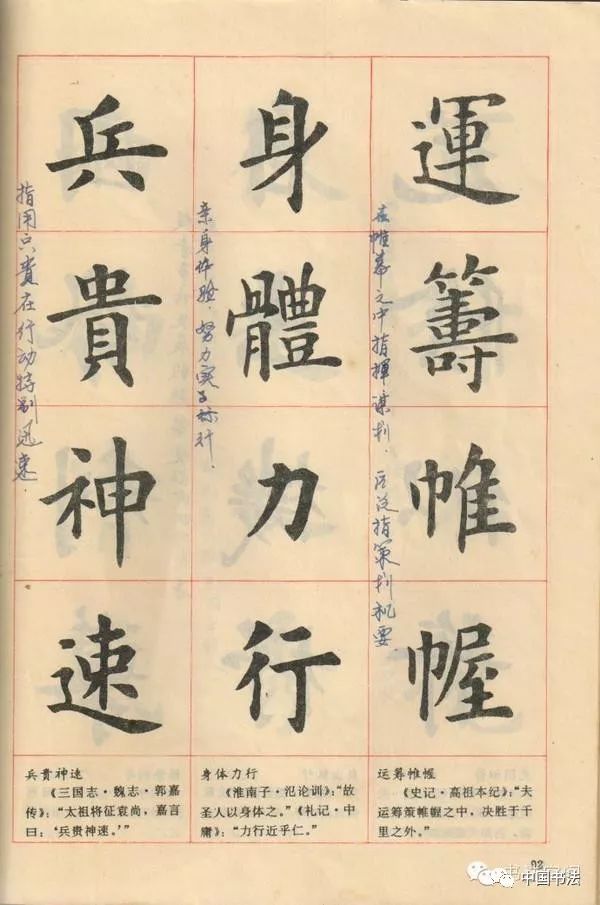 運籌帷幄
在帷幕之中指揮謀划．泛指策划机要
身體力行
亲身体验．努力实行．
兵貴神速
指用兵贵在行动特别迅速．
运筹帷幄
《史记·高祖本纪》：“夫
运筹策帷幄之中，决胜于千
里之外。”
身体力行
《淮南子·汜论训》：“故
圣人以身体之。”《礼记·中
庸》：“力行近乎仁。”
兵贵神速
《三国志·魏志·郭嘉
传》：“太祖将征袁尚，嘉言
曰：‘兵贵神速。’”
92
中国书法